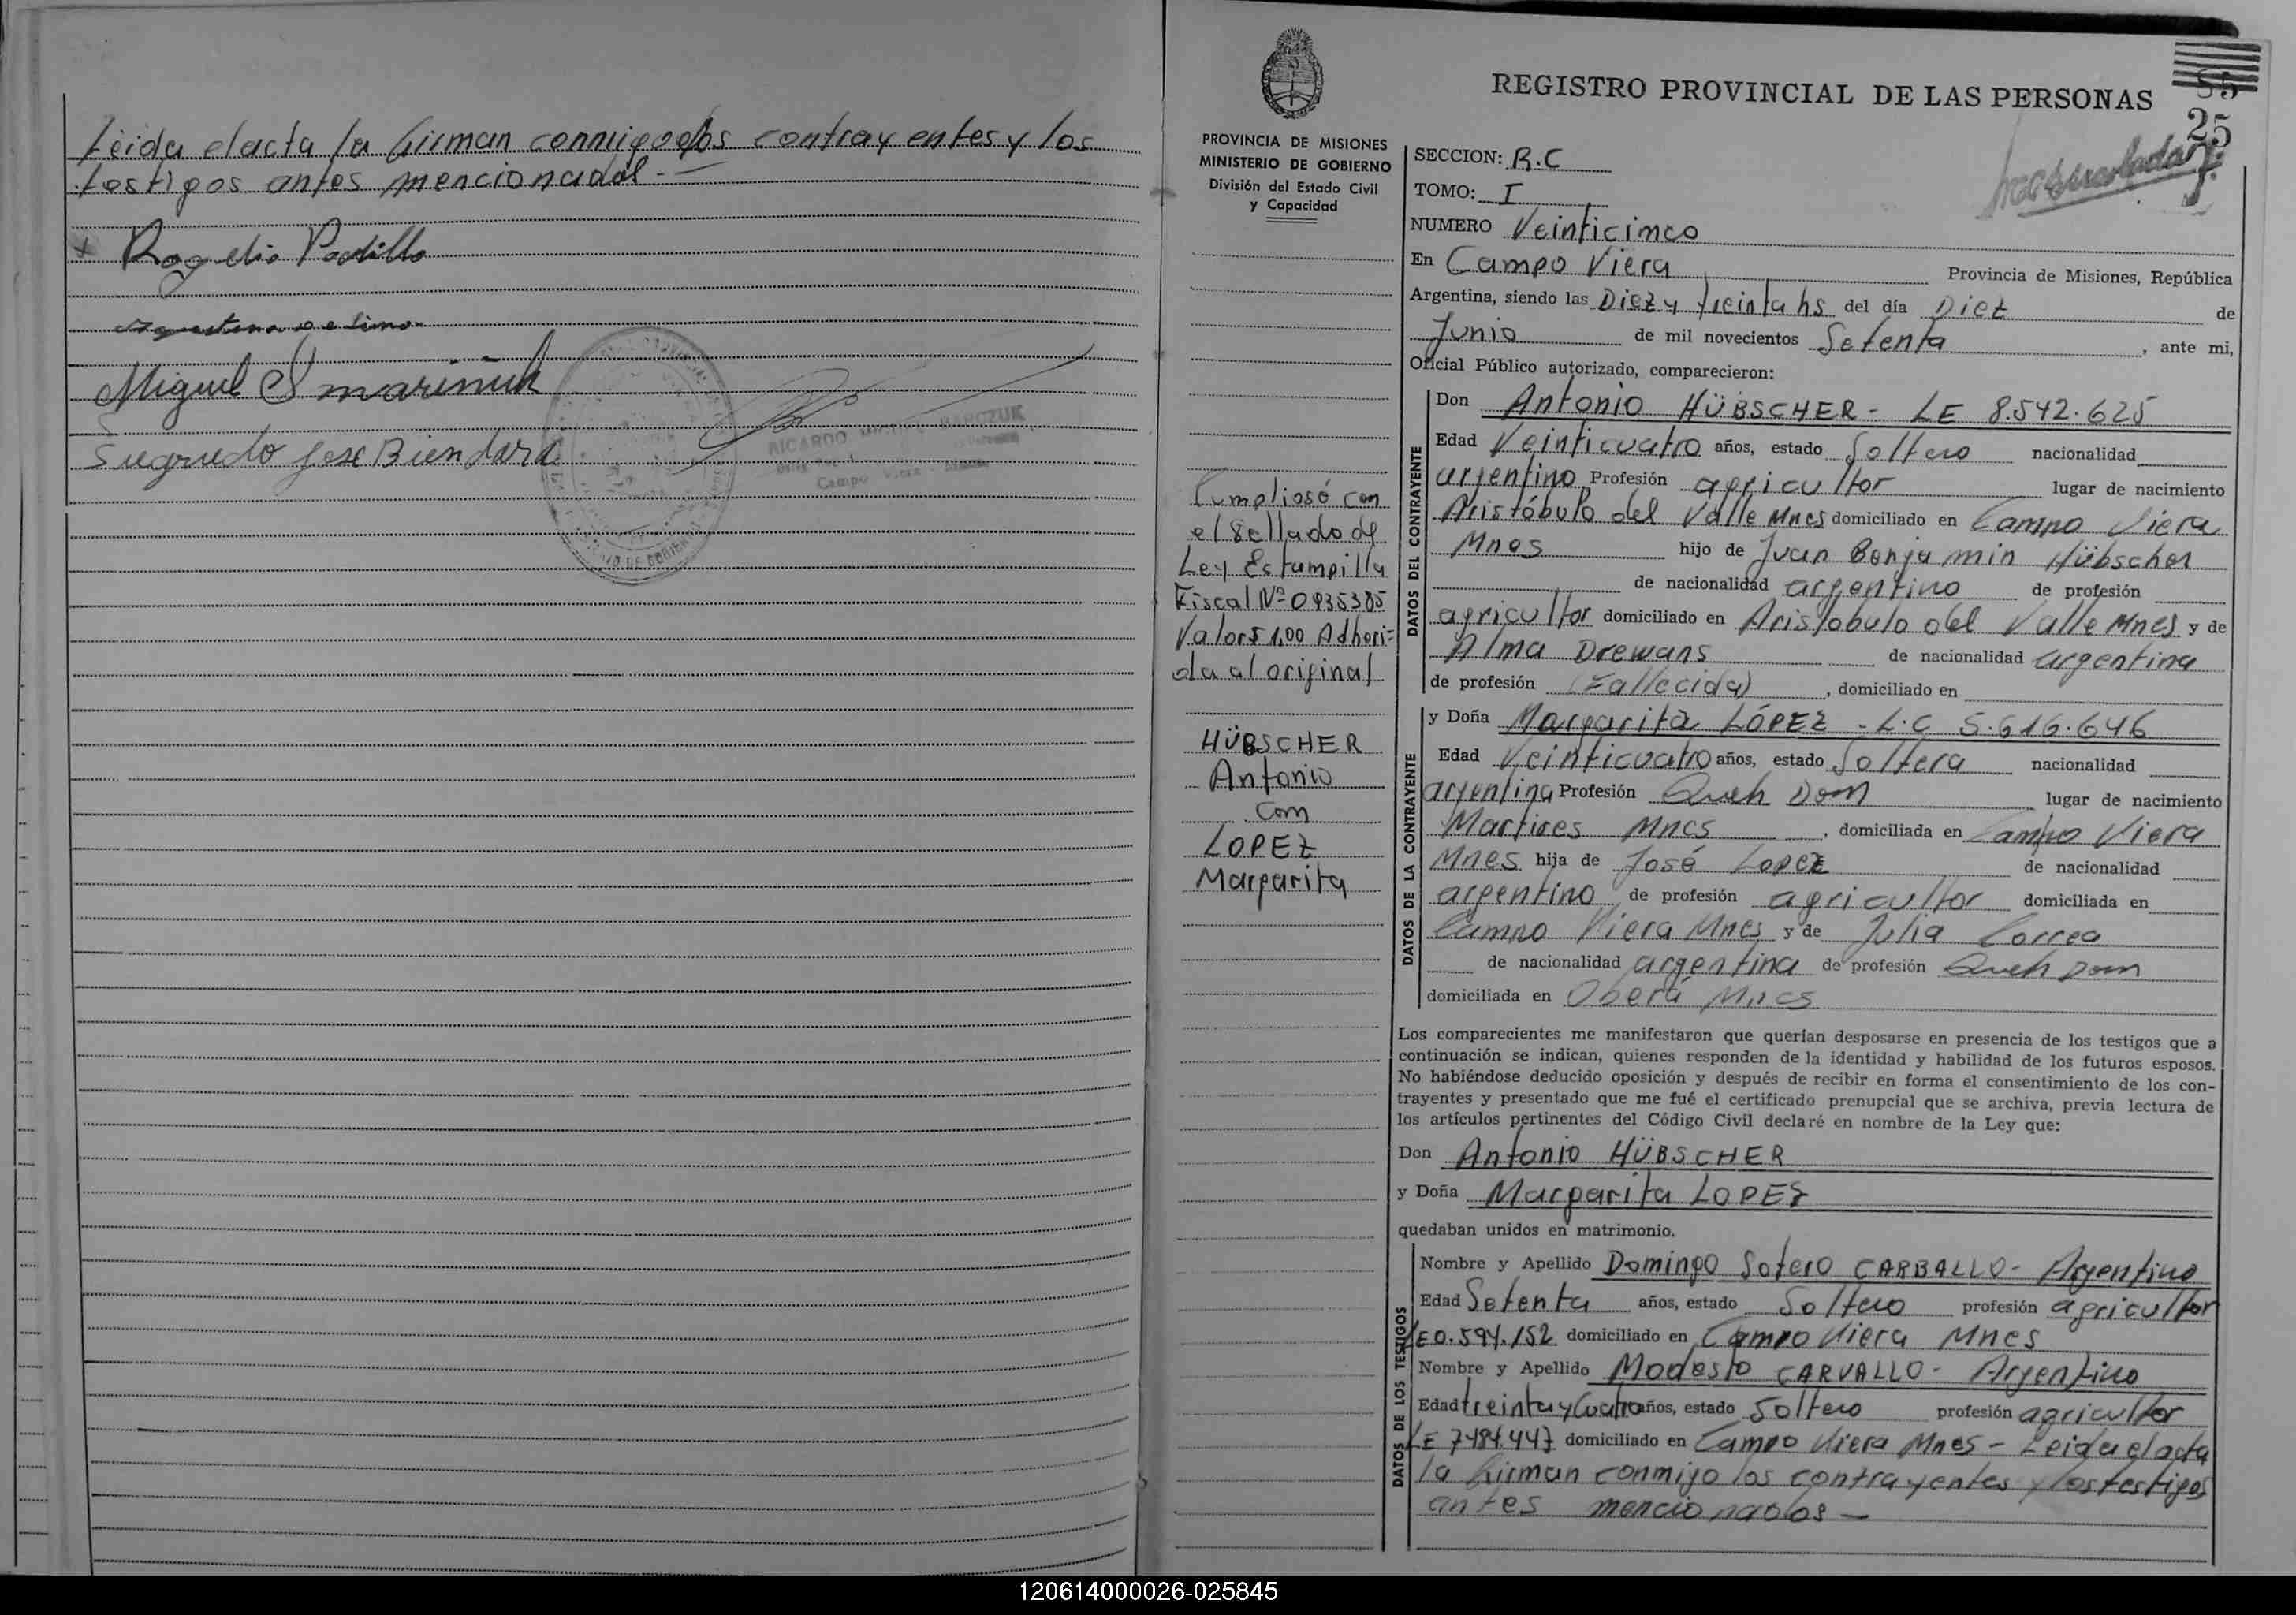 Leida el acta la firman conmigo los contrayentes y los
testigos antes mencionados.-
Rogelio Padilla
Miguel S marinuk
Segundo Jose Biendara
RICARDO MIGUEL BARCZUK
Campo Viera
REGISTRO PROVINCIAL DE LAS PERSONAS
85
25
PROVINCIA DE MISIONES
MINISTERIO DE GOBIERNO
División del Estado Civil
y Capacidad
Cumpliosé con
el Sellado de
Ley Estampilla
Fiscal Nº 0935385
Valor $ 1,00 Adheri=
da al original
HÜBSCHER
Antonio
con
LOPEZ
Margarita
SECCION: R.C
TOMO: I
NUMERO Veinticinco
En Campo Viera Provincia de Misiones, República
Argentina, siendo las Diez y treinta hs del día Diez de
Junio de mil novecientos Setenta, ante mi,
Oficial Público autorizado, comparecieron:
DATOS DEL CONTRAYENTE
Don Antonio HÜBSCHER - LE 8.542.625
Edad Veinticuatro años, estado Soltero nacionalidad
argentino Profesión agricultor lugar de nacimiento
Aristóbulo del Valle Mnes domiciliado en Campo Viera
Mnes hijo de Juan Benjamin Hübscher
de nacionalidad argentino de profesión
agricultor domiciliado en Aristobulo del Valle Mnes y de
Alma Drewans de nacionalidad argentina
de profesión (Fallecida), domiciliado en
DATOS DE LA CONTRAYENTE
y Doña Margarita LÓPEZ - L.C 5.616.646
Edad Veinticuatro años, estado Soltera nacionalidad
argentina Profesión Queh Dom lugar de nacimiento
Martires Mnes, domiciliada en Campo Viera
Mnes hija de José Lopez de nacionalidad
argentino de profesión agricultor domiciliada en
Campo Viera Mnes y de Julia Correa
de nacionalidad argentina de profesión Queh Dom
domiciliada en Oberá Mnes
Los comparecientes me manifestaron que querían desposarse en presencia de los testigos que a
continuación se indican, quienes responden de la identidad y habilidad de los futuros esposos.
No habiéndose deducido oposición y después de recibir en forma el consentimiento de los con-
trayentes y presentado que me fué el certificado prenupcial que se archiva, previa lectura de
los artículos pertinentes del Código Civil declaré en nombre de la Ley que:
Don Antonio HÜBSCHER
y Doña Margarita LOPEZ
quedaban unidos en matrimonio.
DATOS DE LOS TESTIGOS
Nombre y Apellido Domingo Sotero CARBALLO - Argentino
Edad Setenta años, estado Soltero profesión agricultor
LE 0.594.152 domiciliado en Campo Viera Mnes
Nombre y Apellido Modesto CARVALLO - Argentino
Edad treinta y Cuatro años, estado Soltero profesión agricultor
LE 7484.447 domiciliado en Campo Viera Mnes - Leida el acta
la firman conmigo los contrayentes y los testigos
antes mencionados -
120614000026-025845